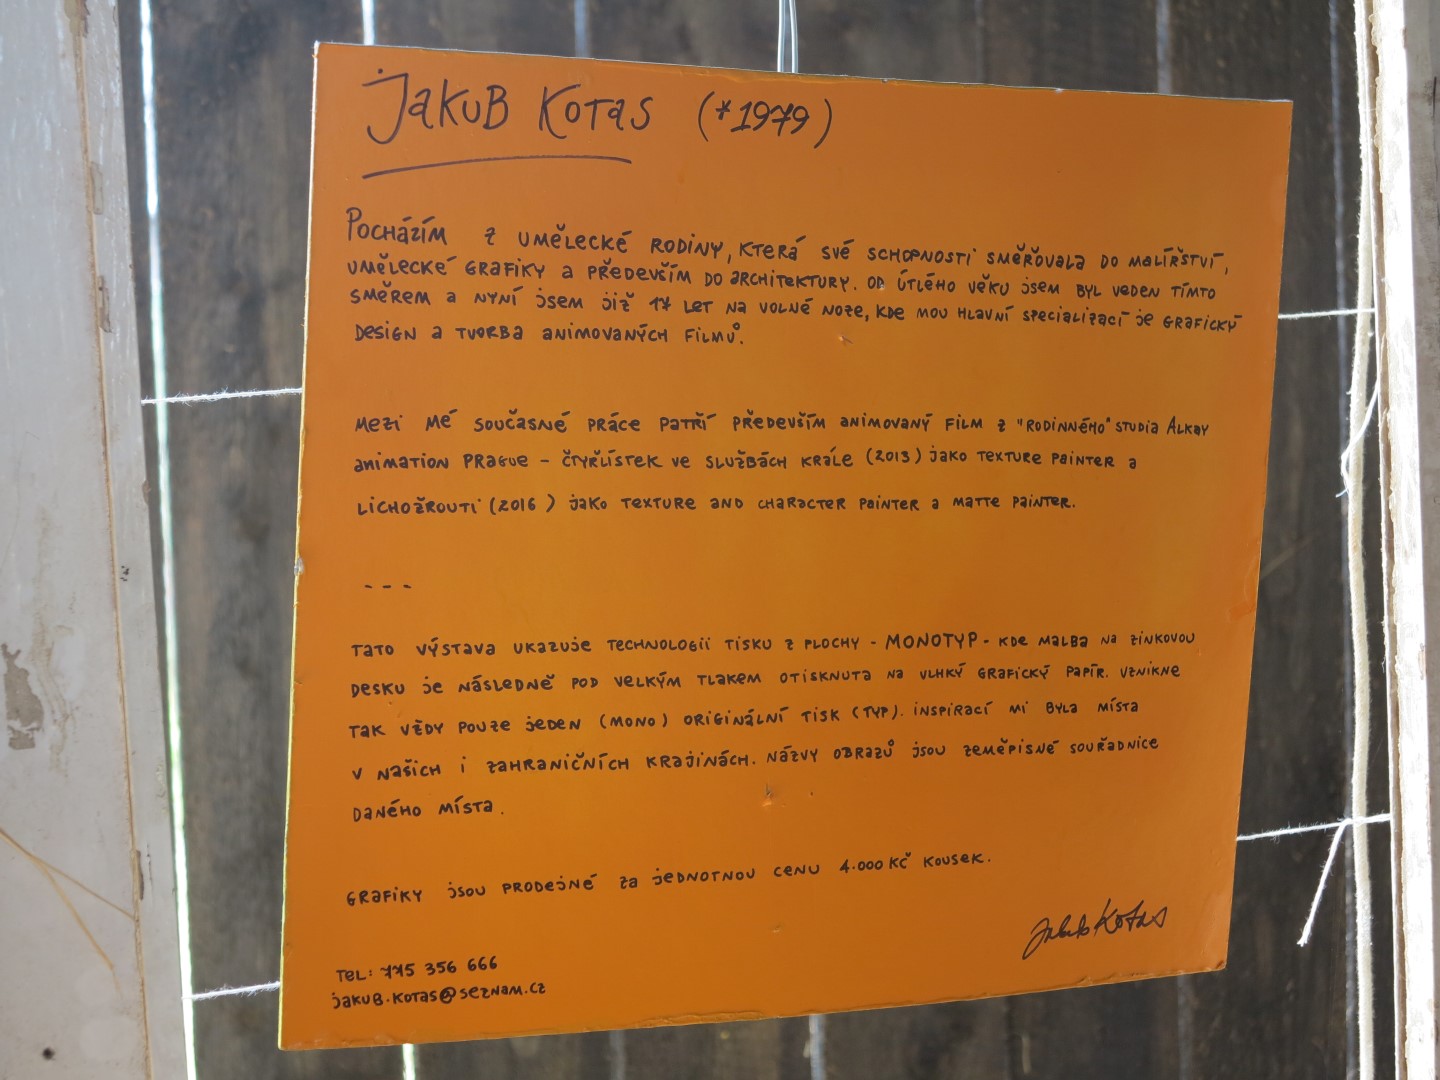 Jakub Kotas (*1979)
Pocházím z umělecké rodiny, která své schopnosti směřovala do malířství,
umělecké grafiky a především do architektury. Od útlého věku jsem byl veden tímto
směrem a nyní jsem již 17 let na volné noze, kde mou hlavní specializací je grafický
design a tvorba animovaných filmů.
Mezi mé současné práce patří především animovaný film z "rodinného" studia Alkay
animation Prague - Čtyřlístek ve službách krále (2013) jako texture painter a
Lichožrouti (2016) jako texture and character painter a matte painter.
---
Tato výstava ukazuje technologii tisku z plochy - MONOTYP - kde malba na zinkovou
desku je následně pod velkým tlakem otisknuta na vlhký grafický papír. Vznikne
tak vždy pouze jeden (mono) originální tisk (typ). Inspirací mi byla místa
v našich i zahraničních krajinách. Názvy obrazů jsou zeměpisné souřadnice
daného místa.
Grafiky jsou prodejné za jednotnou cenu 4.000 Kč kousek.
Jakub Kotas
Tel: 775 356 666
jakub.kotas@seznam.cz